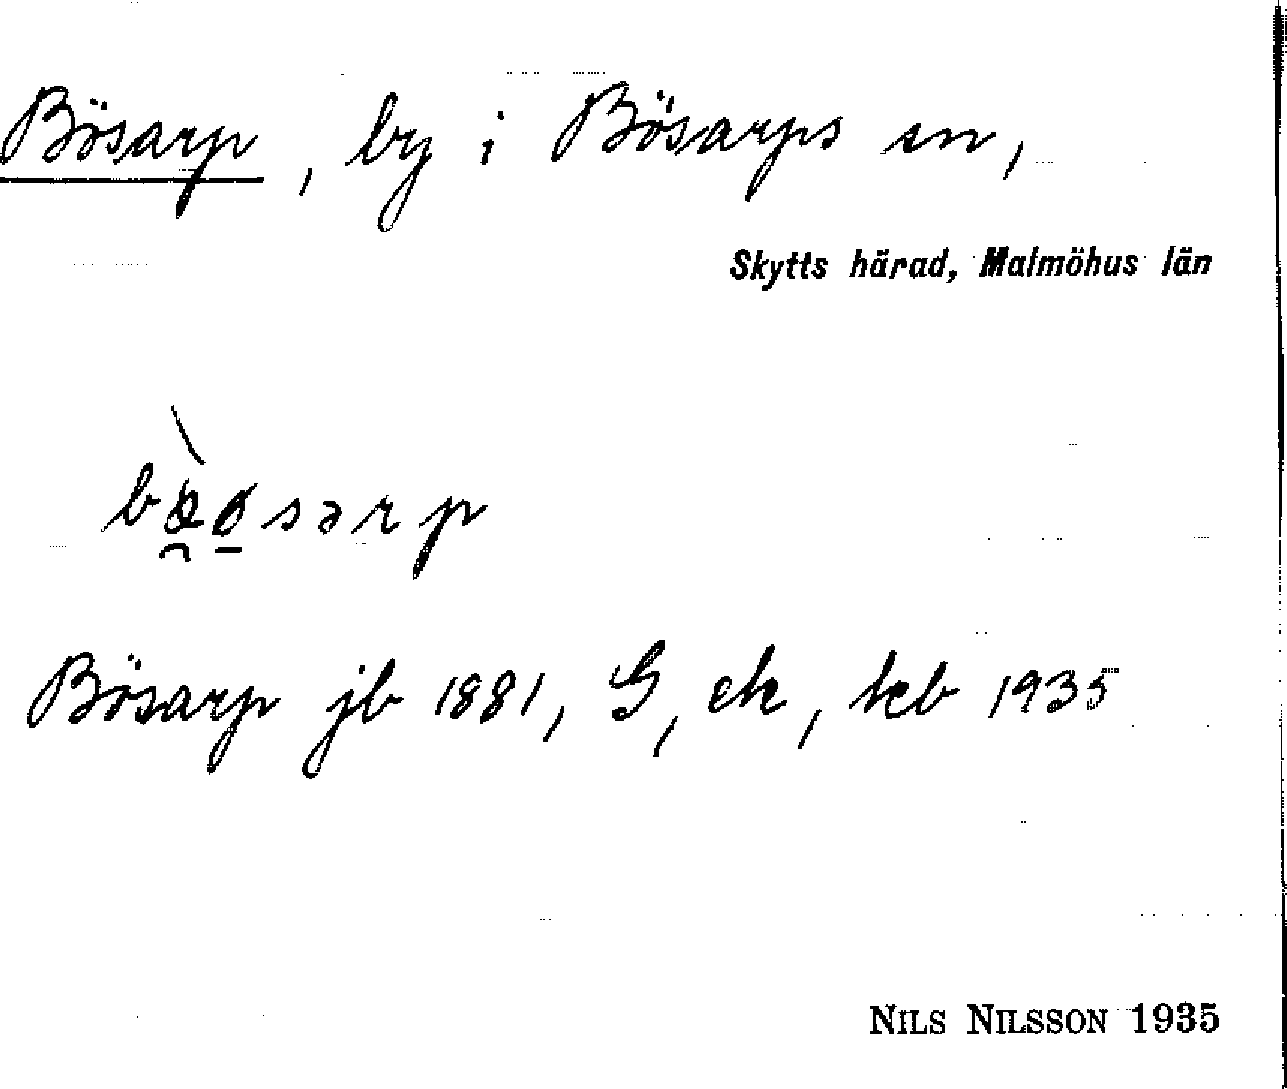 Bösarp, by i Bösarps sn,
Skytts härad, Malmöhus län
Bösarp jb 1881, G, ek, kb 1935
NILS NILSSON 1935